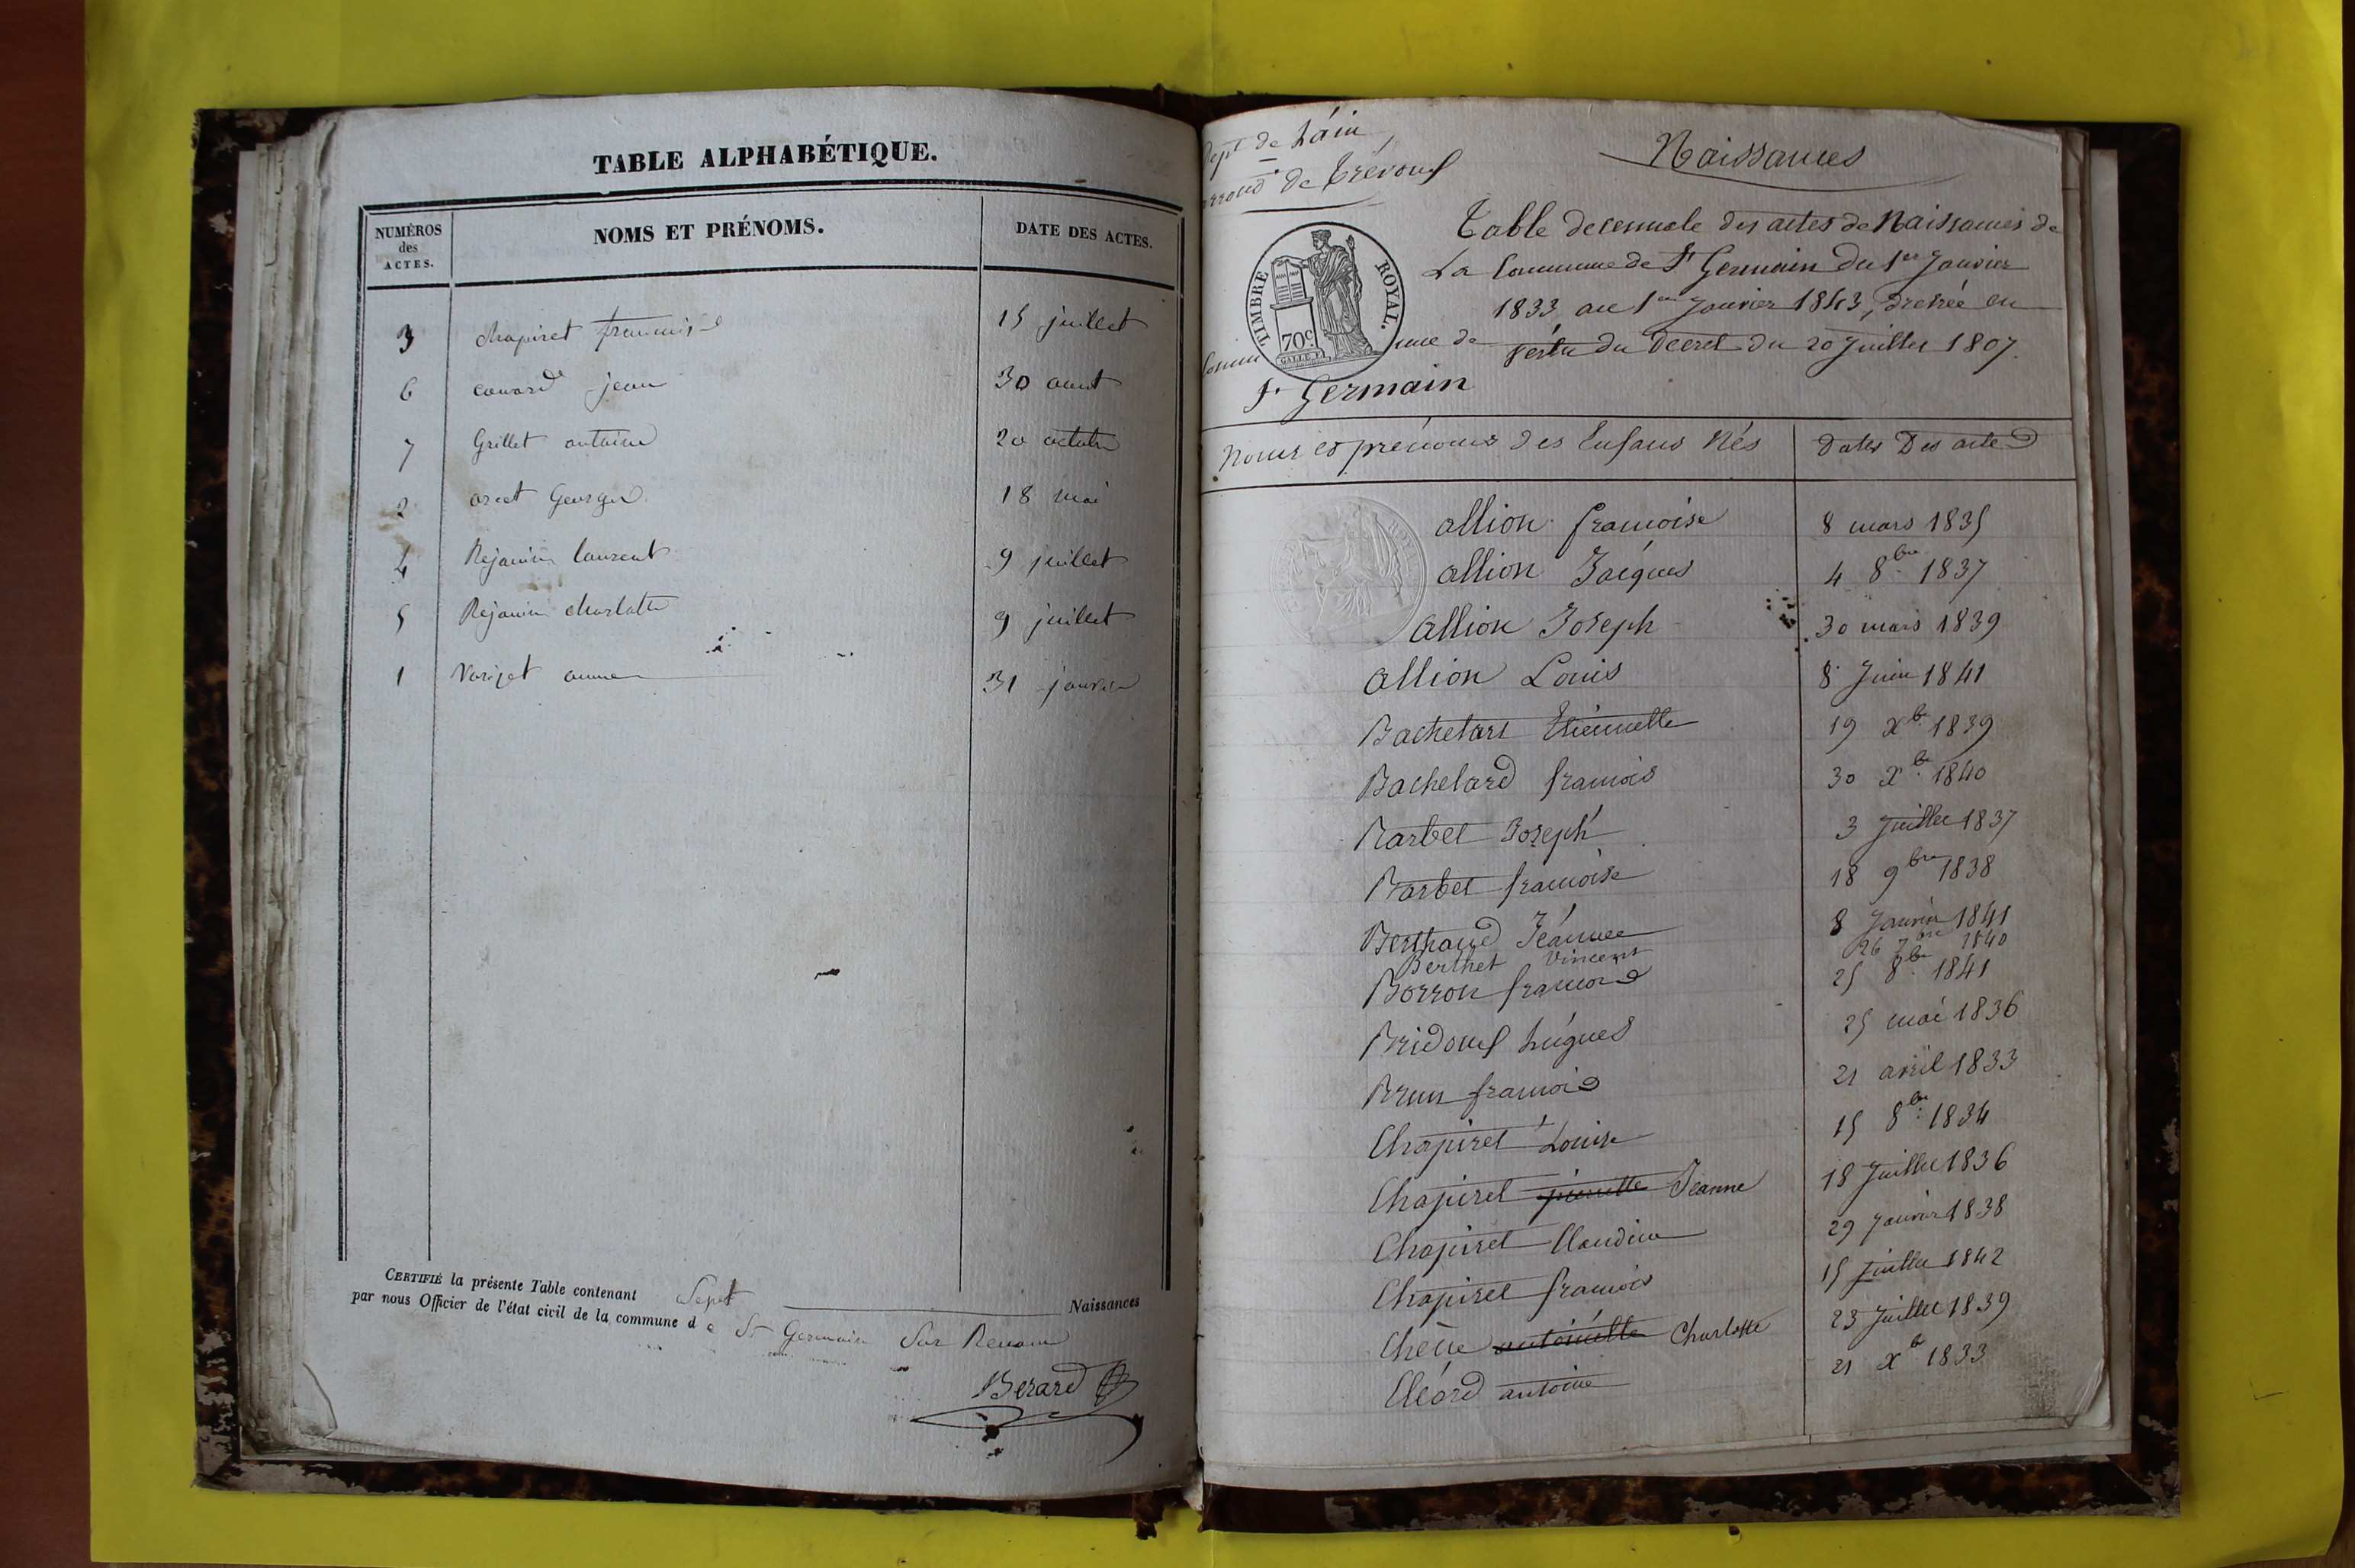 TABLE ALPHABÉTIQUE.
NUMÉROS des ACTES. NOMS ET PRÉNOMS. DATE DES ACTES.
3 chapiret francois 15 juillet
6 jean 30 aout
7 Grillet antoine 20 octobre
2 Georges 18 mai
4 Rejanin laurent 9 juillet
5 Rejanin charlotte 9 juillet
1 anne 31 janvier
CERTIFIÉ la présente Table contenant Sept Naissances
par nous Officier de l'état civil de la commune de St Germain Sur Renom
Berard
Dept de L'ain
arrond de Trévoux
TIMBRE ROYAL.
70c
Commune de
St Germain
Naissances
Table decennale des actes de Naissances de
La Commune de St Germain du 1er Janvier
1833 au 1er Janvier 1843, dressée en
vertu du Decret du 20 Juillet 1807.
Noms et prénoms des Enfans Nés Dates Des actes
allion francoise 8 mars 1835
allion Jacques 4 8bre 1837
allion Joseph 30 mars 1839
allion Louis 8 Juin 1841
Bachelard Etiennette 19 Xbre 1839
Bachelard francois 30 Xbre 1840
Barbet Joseph 3 Juillet 1837
Barbet francoise 18 9bre 1838
Berthaud Jeanne 8 Janvier 1841
Berthet Vincent 26 7bre 1840
Borron francois 25 8bre 1841
Bridoux hugues 25 mai 1836
Brun francois 21 avril 1833
Chapiret Louise 15 8bre 1834
Chapiret pierrette Jeanne 18 Juillet 1836
Chapiret Claudine 29 Janvier 1838
Chapiret francois 15 juillet 1842
Chêne antoinette Charlotte 23 Juillet 1839
Cléard antoine 21 Xbre 1833